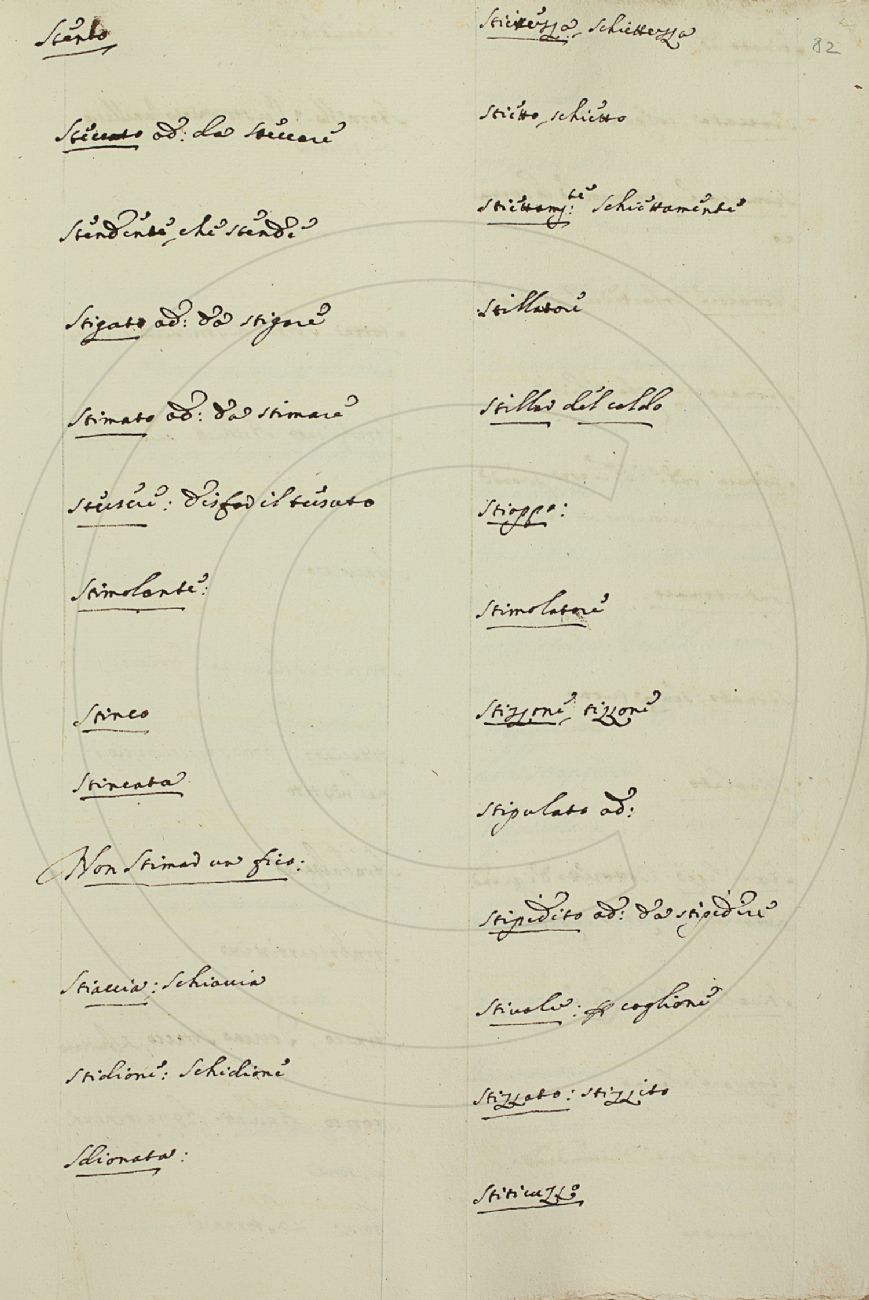 Stento
Steccato ad: da Steccare
Stendente, che stende
Stigato ad: da stigare
Stimato ad: da stimare
Stessere: disfar il tessuto
Stimolante:
Stinco
Stincata
Non Stimar un fico:
Stiaccia: Schiaccia
Stidione: Schidione
Stionata:
82
Stiettezza, schiettezza
Stietto, schietto
Stiettam:te Schiettamente
Stillatore
Stillar del caldo
Stioppo:
Stimolatore
Stizzone, tizzone
Stipulato ad:
Stipidito ad: da stipidire
Stivale: coglione
Stizzato: stizzito
Stiticuzzo